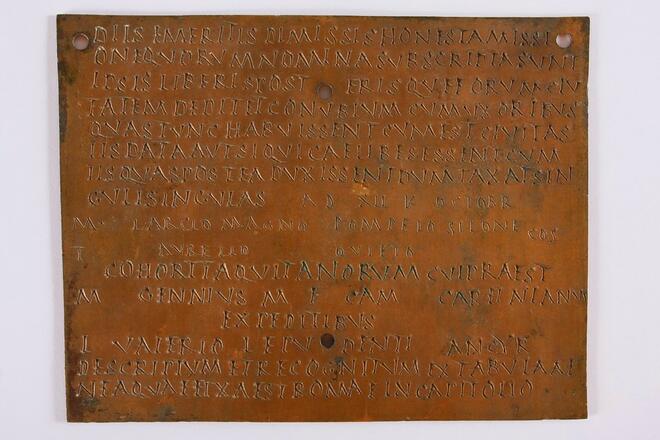 DIIS EMERITIS DIMISSIS HONESTA MISSI
ONE QUORUM NOMINA SUBSCRIPTA SUNT
IPSIS LIBERIS POST ERISQUE EORUM CIV
TATEM DEDIT ET CONUBIUM CUM UXORIBUS
QUAS TUNC HABUISSENT CUM EST CIVITAS
IIS DATA AUT SI QUI CAELIBES ESSENT CUM
IIS QUAS POSTEA DUXISSENT DUMTAXAT SIN
GULI SINGULAS A D XII K OCTOBR
LARCIO MAGNO POMPEIO SILONE COS
T AURELIO QUIETO
COHORT AQUITANORUM CUI PRAEST
M GENNIUS M F CAM CARFINIANUS
EXPEDITIBUS
L VALERIO L F PU DENTI ANCYR
DESCRIPTUM ET RECOGNITUM EX TABULA AE
NEA QUAE FIXA EST ROMAE IN CAPITOLIO